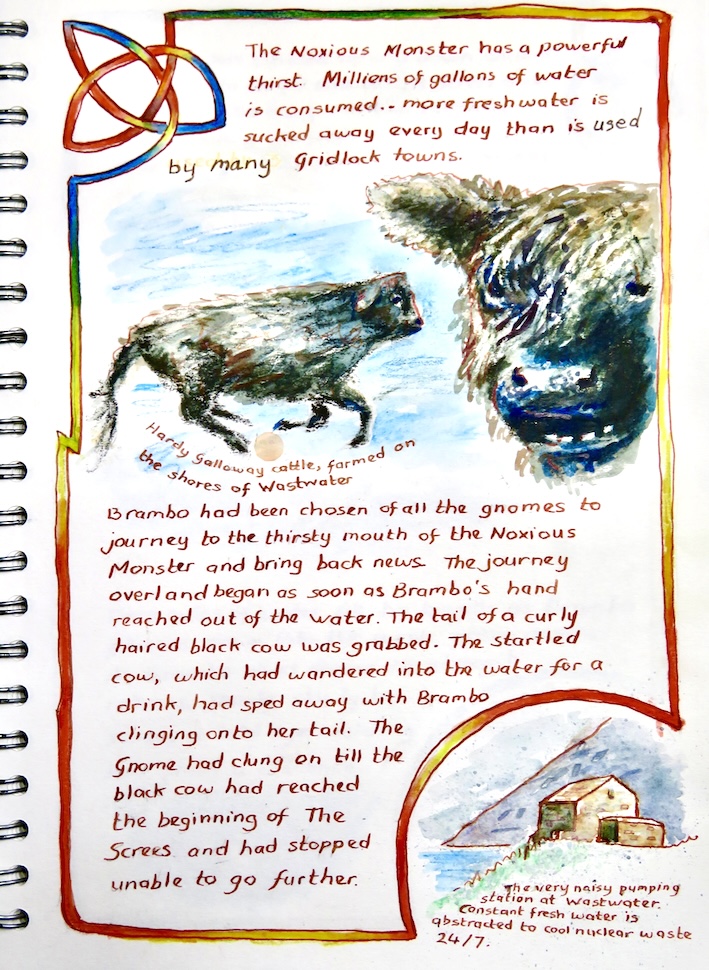 The Noxious Monster has a powerful
thirst. Millions of gallons of water
is consumed.. more freshwater is
sucked away every day than is used
by many Gridlock towns.
Hardy Galloway cattle, farmed on
the shores of Wastwater
Brambo had been chosen of all the gnomes to
journey to the thirsty mouth of the Noxious
Monster and bring back news. The journey
overland began as soon as Brambo's hand
reached out of the water. The tail of a curly
haired black cow was grabbed. The startled
cow, which had wandered into the water for a
drink, had sped away with Brambo
clinging onto her tail. The
Gnome had clung on till the
black cow had reached
the beginning of The
Screes and had stopped
unable to go further.
The very noisy pumping
station at Wastwater.
Constant fresh water is
abstracted to cool nuclear waste
24/7.